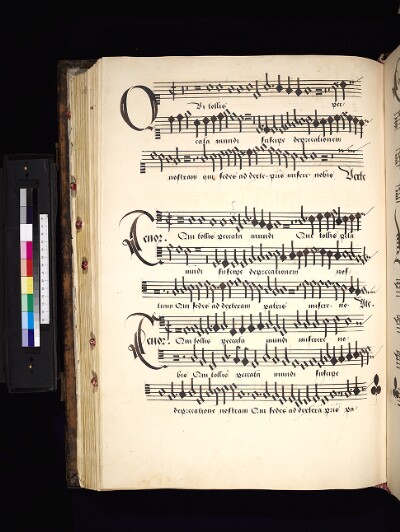 Qvi tollis pec
cata mundi suscipe deprecationem
nostram qui sedes ad dexte. pris misere. nobis Verte
Tenor. Qui tollis peccata mundi Qui tollis pcta
mundi suscipe deprecationem nos.
tram Qui sedes ad dexteram patris misere. no. Vte.
Tenor. Qui tollis peccata mundi miserere no.
bis Qui tollis peccata mundi suscipe
deprecatione nostram Qui sedes ad dextera pris